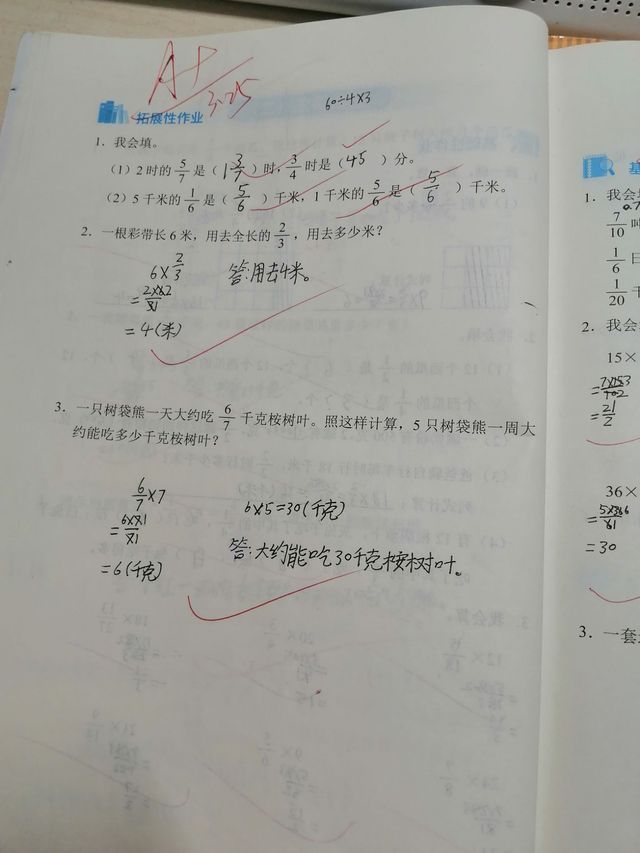 A+
3.25
60÷4×3
拓展性作业
1. 我会填。
(1) 2时的5/7是(1 3/7)时,3/4时是(45)分。
(2) 5千米的1/6是(5/6)千米,1千米的5/6是(5/6)千米。
2. 一根彩带长6米,用去全长的2/3,用去多少米?
6×2/3 答:用去4米。
=4(米)
3. 一只树袋熊一天大约吃6/7千克桉树叶。照这样计算,5只树袋熊一周大
约能吃多少千克桉树叶?
6/7×7
6×5=30(千克)
=6(千克)
答:大约能吃30千克桉树叶。
基
1. 我会
7/10
1/6
1/20
2. 我会
15×
=21/2
36×
=30
3. 一套